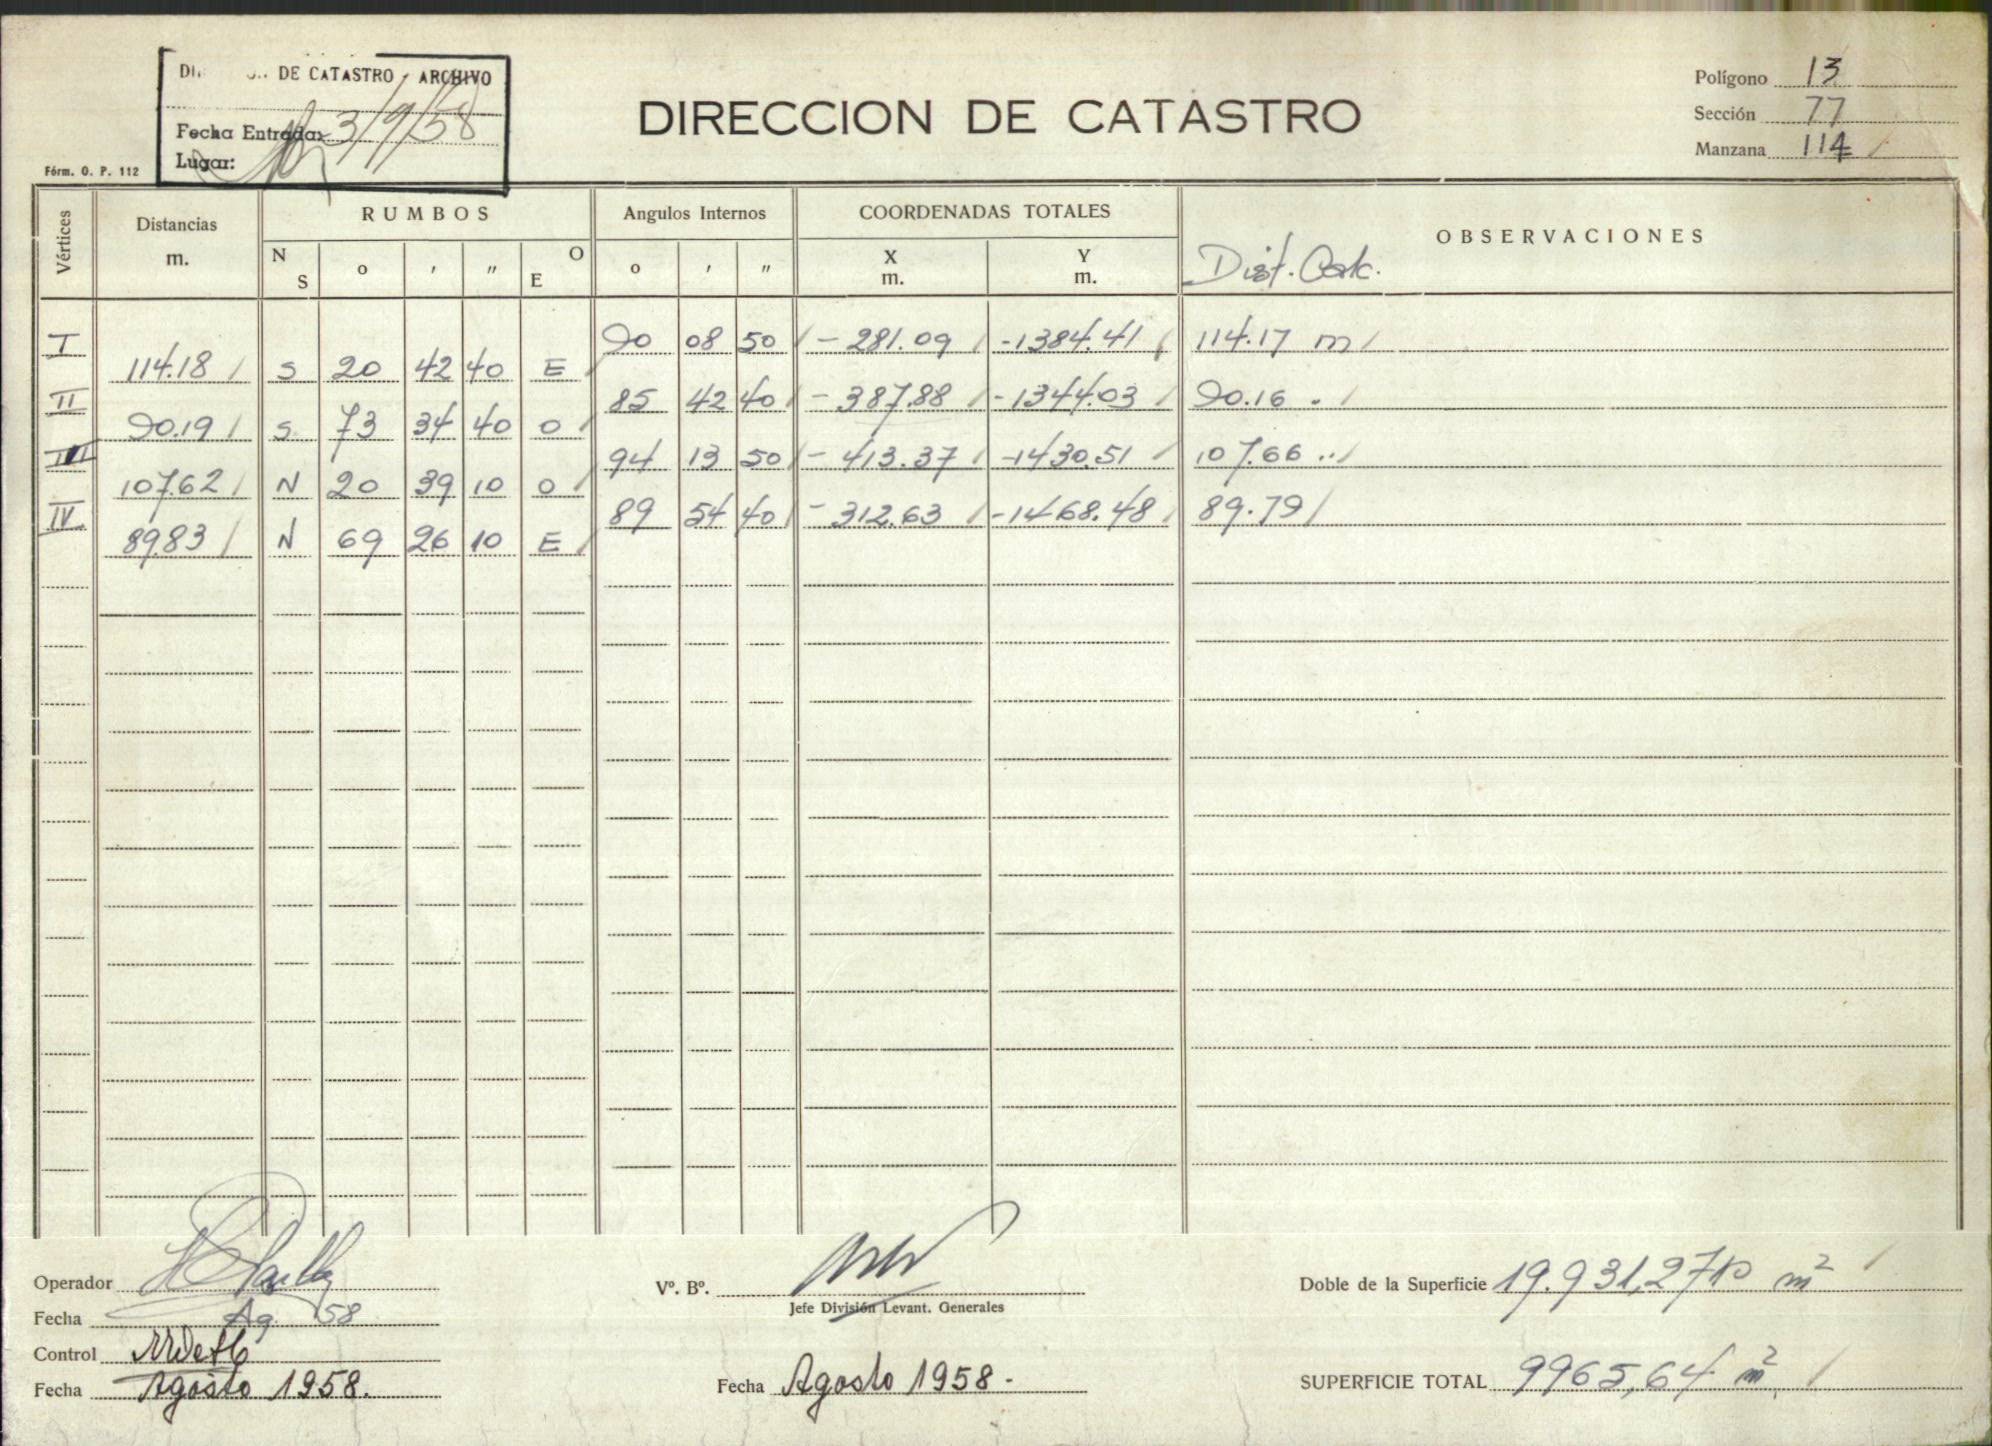 DE CATASTRO - ARCHIVO
Fecha Entrada: 3/9/58
Lugar:
Fórm. O. P. 112
DIRECCION DE CATASTRO
Polígono 13
Sección 77
Manzana 114
Vértices Distancias m. RUMBOS Angulos Internos COORDENADAS TOTALES OBSERVACIONES
N S o ' " O E o ' " X m. Y m. Dist. Calc.
I 90 08 50 -281.09 -1384.41 114.17 m
114.18 S 20 42 40 E
II 85 42 40 -387.88 -1344.03 90.16 "
90.19 S 73 34 40 O
III 94 13 50 -413.37 -1430.51 107.66 "
107.62 N 20 39 10 O
IV 89 54 40 -312.63 -1468.48 89.79
89.83 N 69 26 10 E
Operador
Fecha Ag. 58
Control
Fecha Agosto 1958.
Vº. Bº.
Jefe División Levant. Generales
Fecha Agosto 1958.-
Doble de la Superficie 19.931,2710 m²
SUPERFICIE TOTAL 9965,64 m²